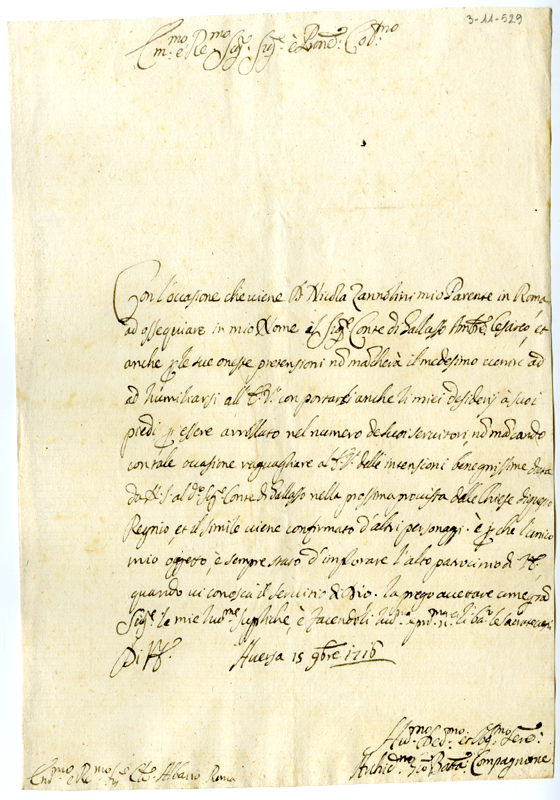 3-11-529
Em.mo e Re.mo Sig.r Sig.r è Pad. Col.mo
Con l'occasione che viene D. Nicola Zannolini mio Parente in Roma
ad ossequiare in mio Nome il Sig.r Conte di Gallasso Cesareo, et
anche p le sue oneste pretensioni nõ mancherà il medesimo venire ad
ad humiliarsi all' con portarli anche li miei desiderj a suoi
piedi p essere arrollato nel numero de suoi servitori nõ mancando
con tale occasione raguagliare al delle intensioni benignissime
da al d.o Sig.r Conte di Gallasso nella prossima provista delle Chiese di questo
Regnio et il simile viene confirmato d'altri personaggi. è p che l'unico
mio oggetto, è sempre stato d'implorare l'alto patrocinio di
quando vi conosca il servitio di Dio. la prego accettare
Sig.r le mie suppliche, è facendoli li bacio le sacre vesti
Di Aversa 15 9bre 1716
Arcid.no Gio Batta Compagnone
Em.mo e Re.mo Sig.r Albano Roma